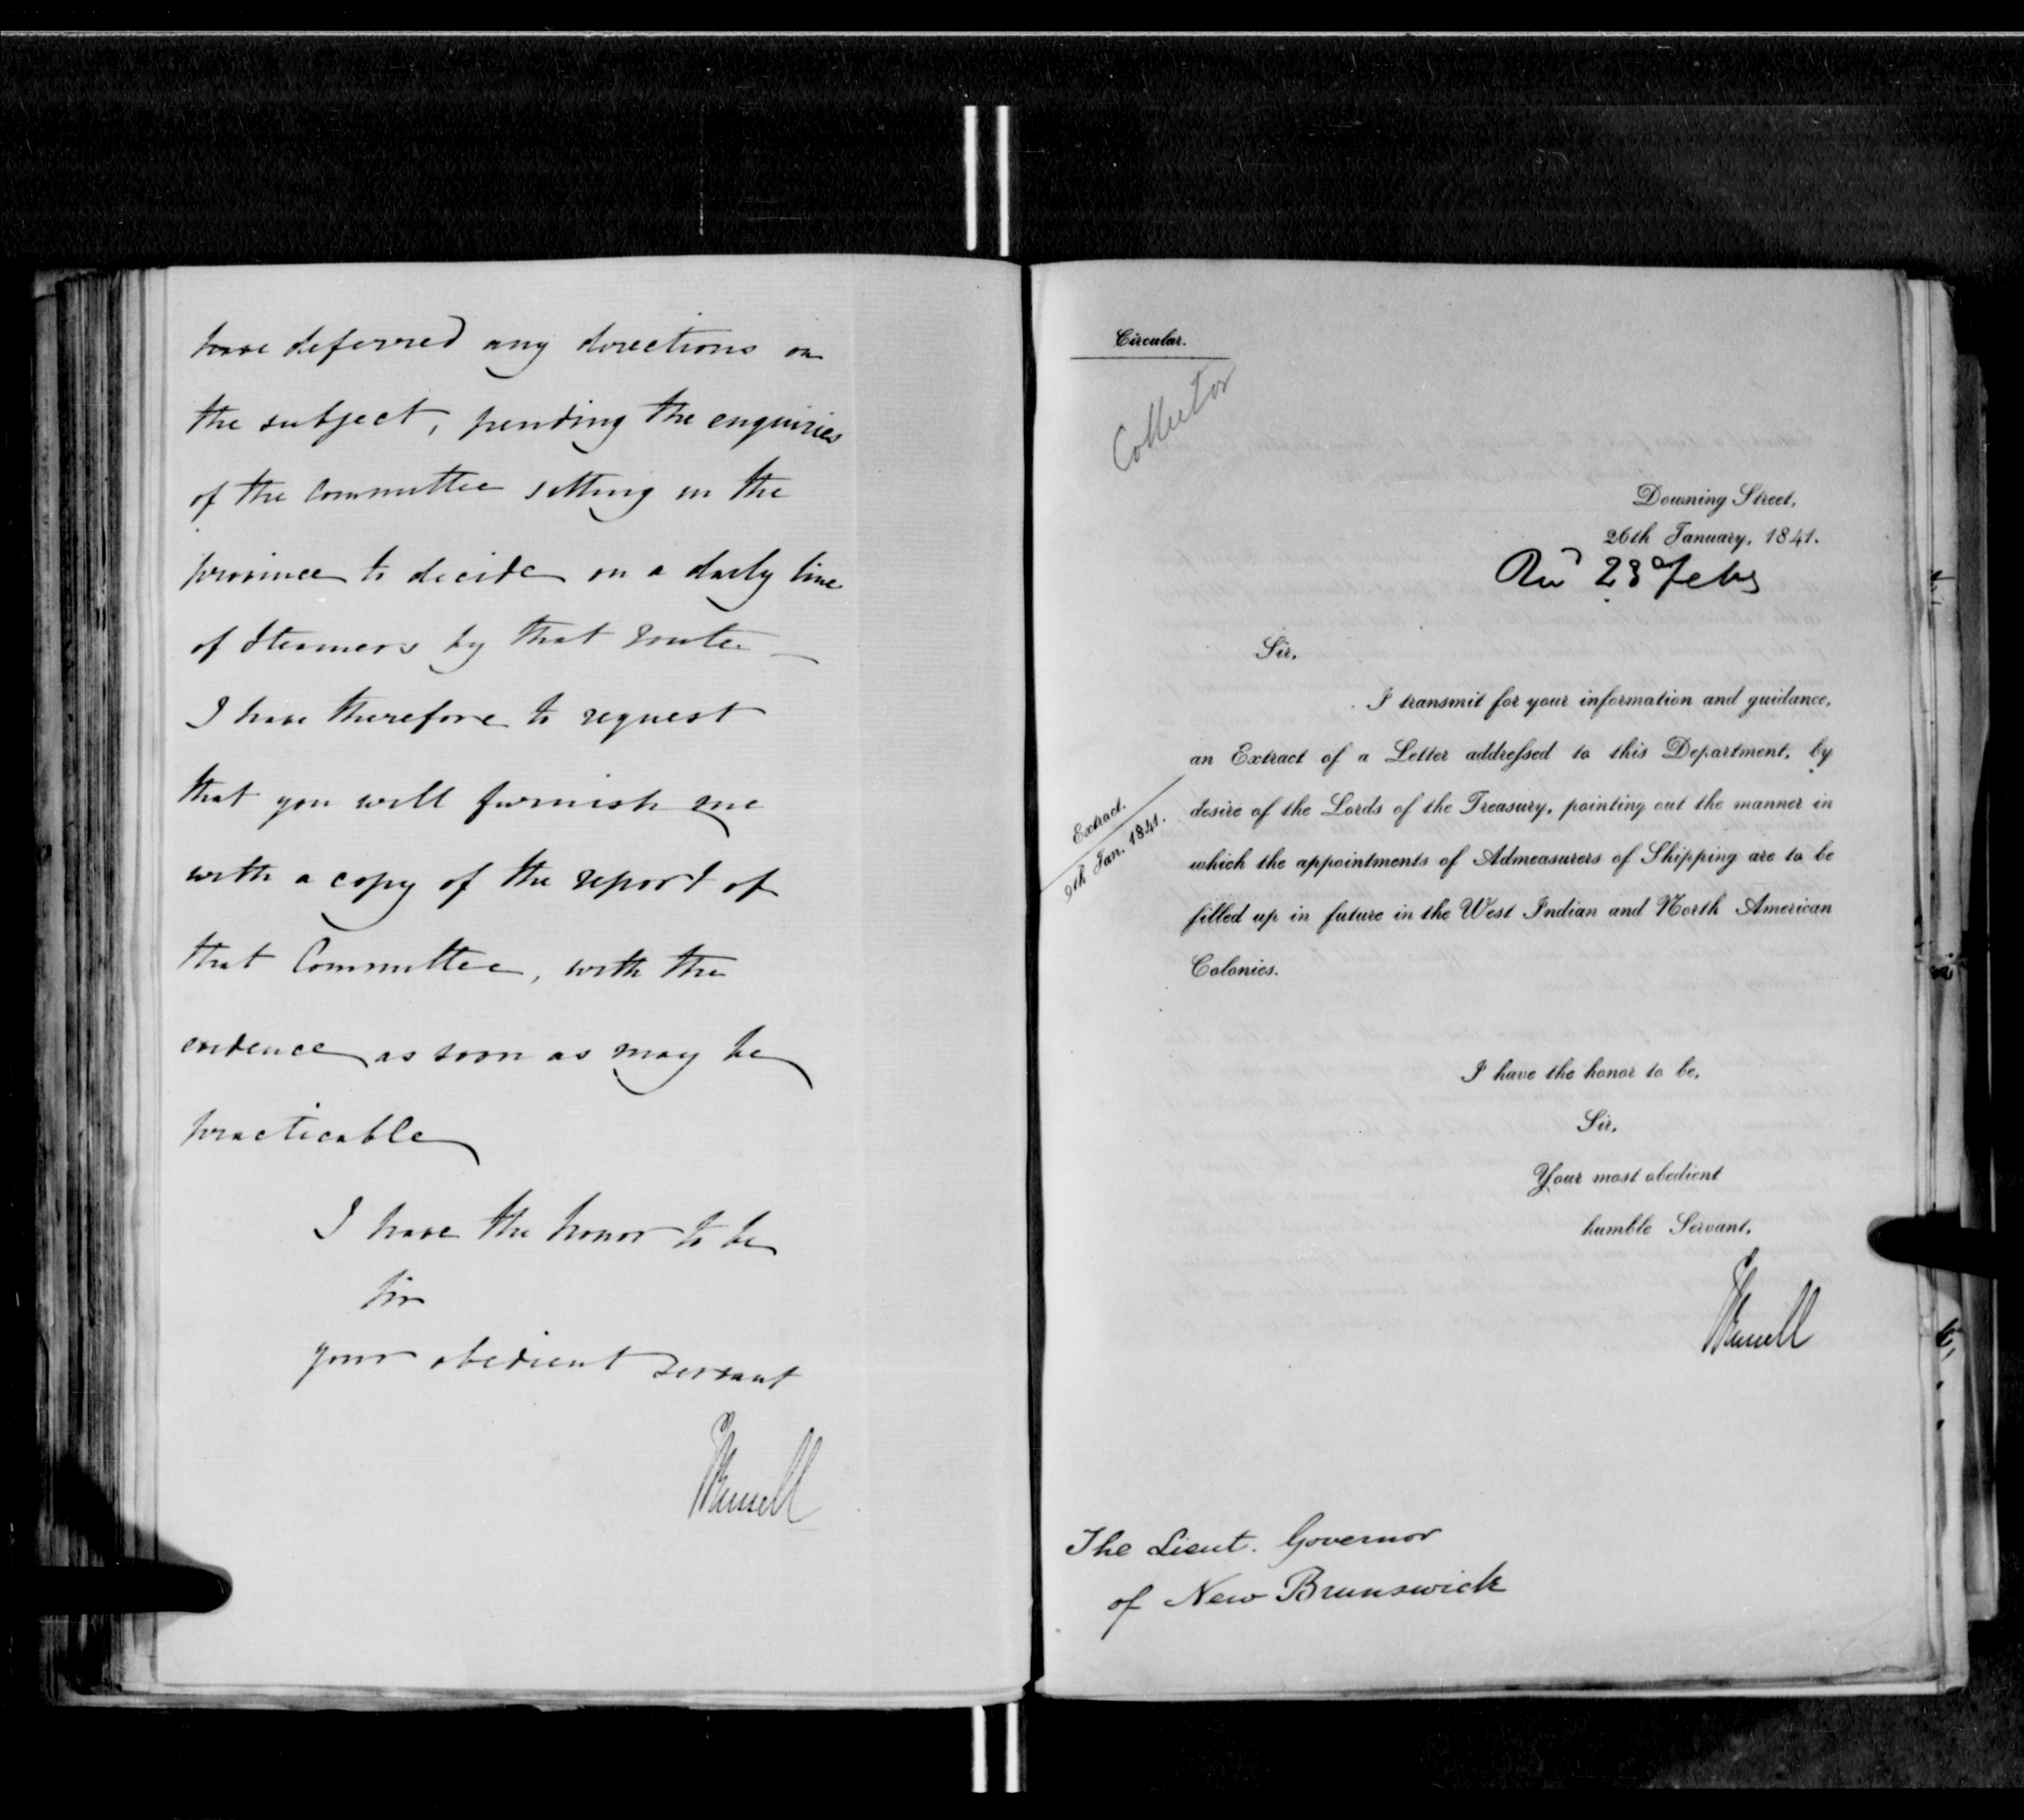 have deferred any directions on
the subject, pending the enquiries
of the Committee sitting in the
province to decide on a daily line
of Steamers by that route —
I have therefore to request
that you will furnish me
with a copy of the report of
that Committee, with the
evidence as soon as may be
practicable
I have the honor to be
Sir
your obedient servant
JRussell
Circular.
Collector
Downing Street,
26th January, 1841.
23d Feby
Sir,
I transmit for your information and guidance,
an Extract of a Letter addressed to this Department, by
desire of the Lords of the Treasury, pointing out the manner in
which the appointments of Admeasurers of Shipping are to be
filled up in future in the West Indian and North American
Colonies.
Extract.
9th Jan. 1841.
I have the honor to be,
Sir,
Your most obedient
humble Servant,
JRussell
The Lieut. Governor
of New Brunswick